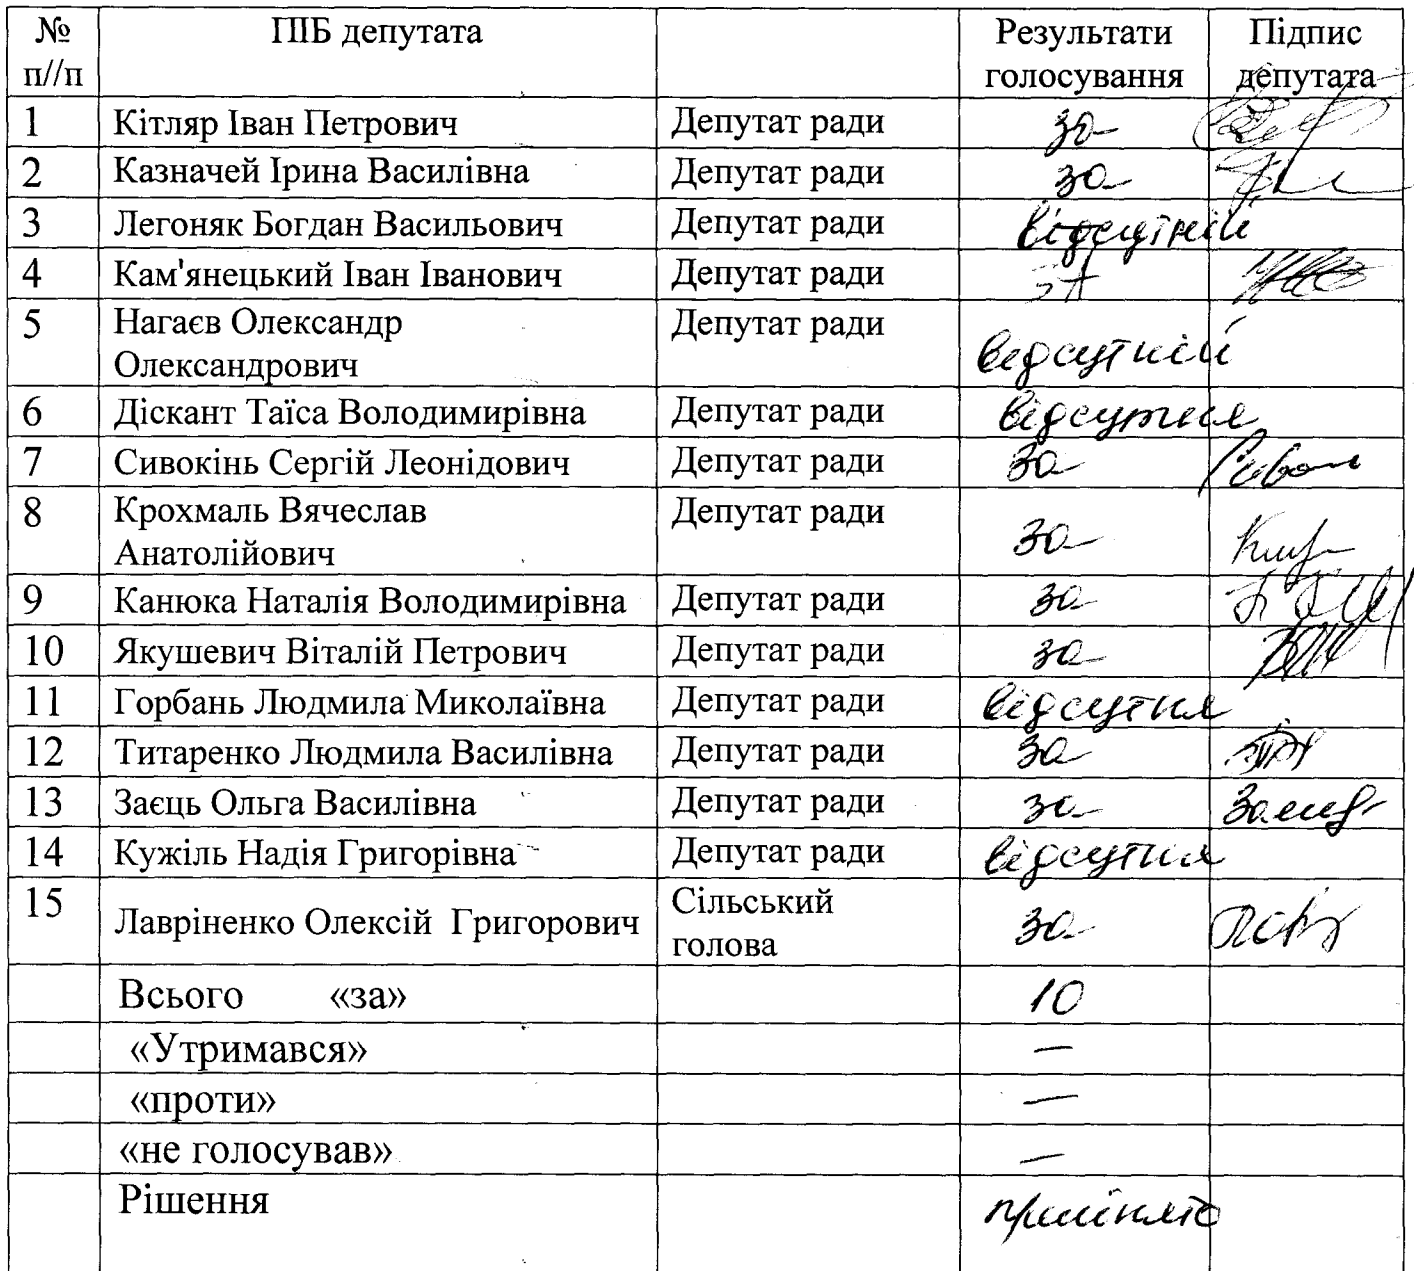 № п//п ПІБ депутата Результати голосування Підпис депутата
1 Кітляр Іван Петрович Депутат ради за
2 Казначей Ірина Василівна Депутат ради за
3 Легоняк Богдан Васильович Депутат ради відсутній
4 Кам'янецький Іван Іванович Депутат ради за
5 Нагаєв Олександр
Олександрович Депутат ради відсутній
6 Діскант Таїса Володимирівна Депутат ради відсутня
7 Сивокінь Сергій Леонідович Депутат ради за
8 Крохмаль Вячеслав
Анатолійович Депутат ради за
9 Канюка Наталія Володимирівна Депутат ради за
10 Якушевич Віталій Петрович Депутат ради за
11 Горбань Людмила Миколаївна Депутат ради відсутня
12 Титаренко Людмила Василівна Депутат ради за
13 Заєць Ольга Василівна Депутат ради за
14 Кужіль Надія Григорівна Депутат ради відсутня
15 Лавріненко Олексій Григорович Сільський голова за
Всього «за» 10
«Утримався» —
«проти» —
«не голосував» —
Рішення прийнято